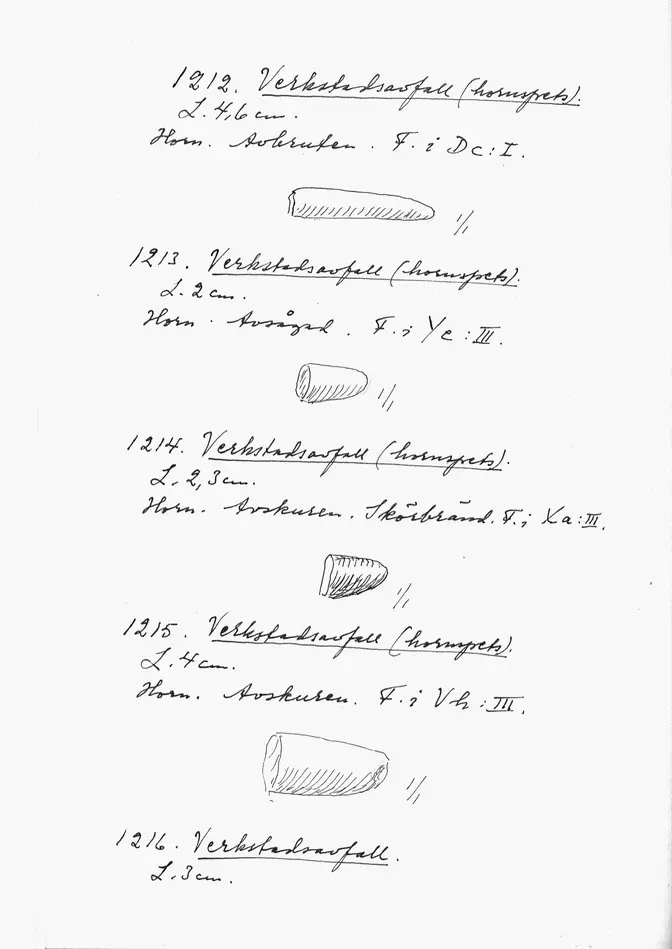 1212. Verkstadsavfall (hornspets).
L. 4,6 cm.
Horn. Avbruten. F. i Dc:I.
1/1
1213. Verkstadsavfall (hornspets).
L. 2 cm.
Horn. Avsågad. F. i Yc:III.
1/1
1214. Verkstadsavfall (hornspets).
L. 2,3 cm.
Horn. Avskuren. Skörbränd. F. i Xa:III.
1/1
1215. Verkstadsavfall (hornspets).
L. 4 cm.
Horn. Avskuren. F. i Vh:III.
1/1
1216. Verkstadsavfall.
L. 3 cm.